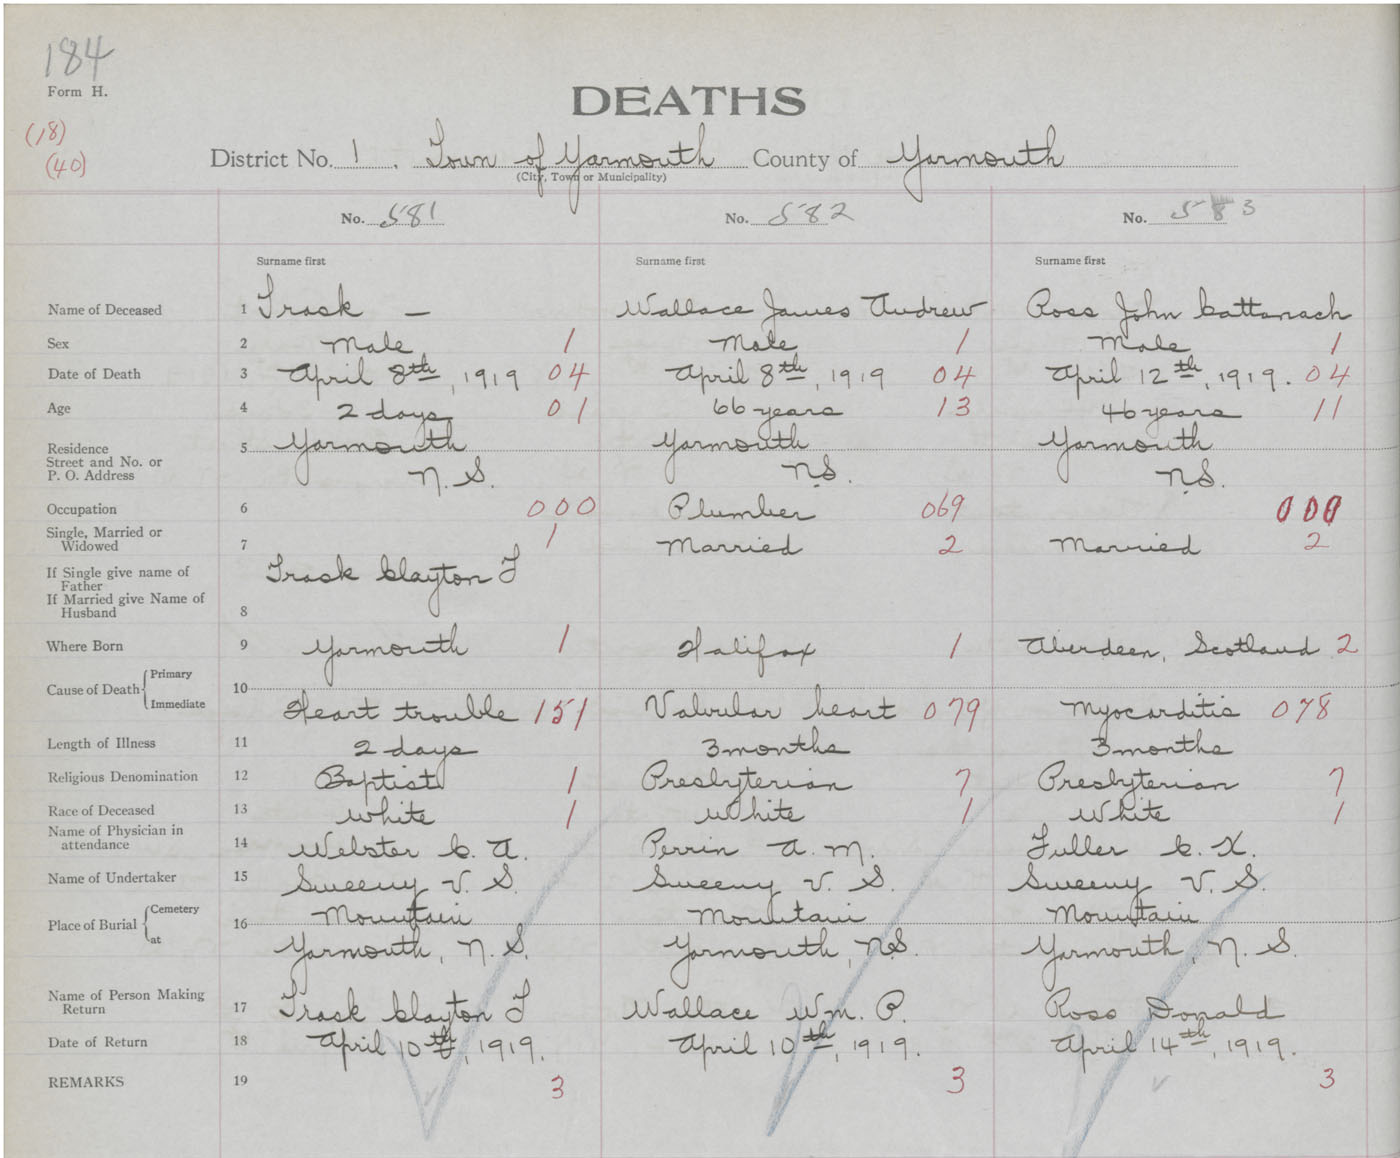 184
Form H.
DEATHS
(18)
(40)
District No. 1. Town of Yarmouth County of Yarmouth
(City, Town or Municipality)
No. 581 No. 582 No. 583
Surname first Surname first Surname first
Name of Deceased 1 Trask — Wallace James Andrew Ross John Cattanach
Sex 2 Male 1 Male 1 Male 1
Date of Death 3 April 8th, 1919 04 April 8th, 1919 04 April 12th, 1919. 04
Age 4 2 days 01 66 years 13 46 years 11
Residence 5 Yarmouth Yarmouth Yarmouth
Street and No. or
P. O. Address N. S. N.S. N.S.
Occupation 6 000 Plumber 069 000
Single, Married or
Widowed 7 1 Married 2 Married 2
If Single give name of Trask Clayton T
Father
If Married give Name of
Husband 8
Where Born 9 Yarmouth 1 Halifax 1 Aberdeen, Scotland 2
Cause of Death Primary 10
Immediate Heart trouble 151 Valvular heart 079 Myocarditis 078
Length of Illness 11 2 days 3 months 3 months
Religious Denomination 12 Baptist 1 Presbyterian 7 Presbyterian 7
Race of Deceased 13 White 1 White 1 White 1
Name of Physician in
attendance 14 Webster C. A. Perrin A. M. Fuller C. K.
Name of Undertaker 15 Sweeny V. S. Sweeny V. S. Sweeny V. S.
Place of Burial Cemetery 16 Mountain Mountain Mountain
at Yarmouth, N. S. Yarmouth, N.S. Yarmouth, N. S.
Name of Person Making
Return 17 Trask Clayton T Wallace Wm. P. Ross Donald
Date of Return 18 April 10th, 1919. April 10th, 1919. April 14th, 1919.
REMARKS 19 3 3 3